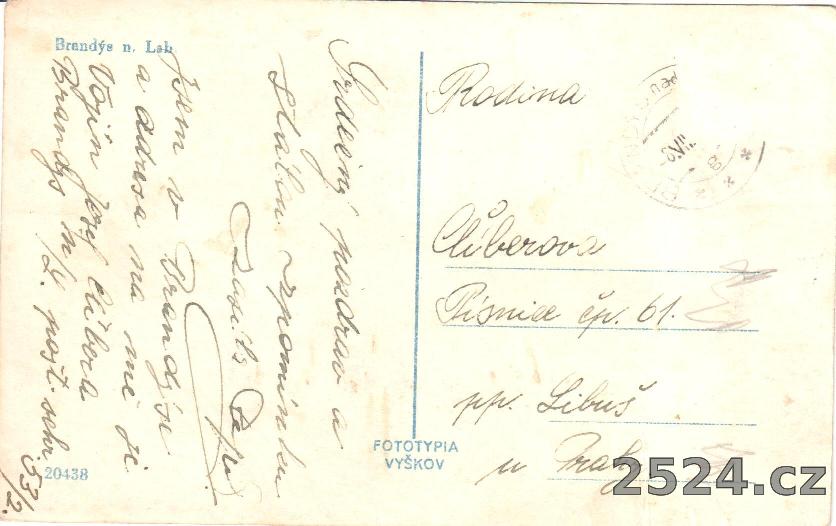 Brandýs n. Lab.
Srdečný pozdrav a
statou vzpomínku
zasílá Pepa
Jsem v Brandýse
a adresa na mne je
Vojín Josef Clíbera
Brandýs n L. pošt. schr.
53/2.
20438
FOTOTYPIA
VYŠKOV
Rodina
Clíberova
Písnice čp. 61.
pp. Libuš
u Prahy
6.VII.
2524.cz